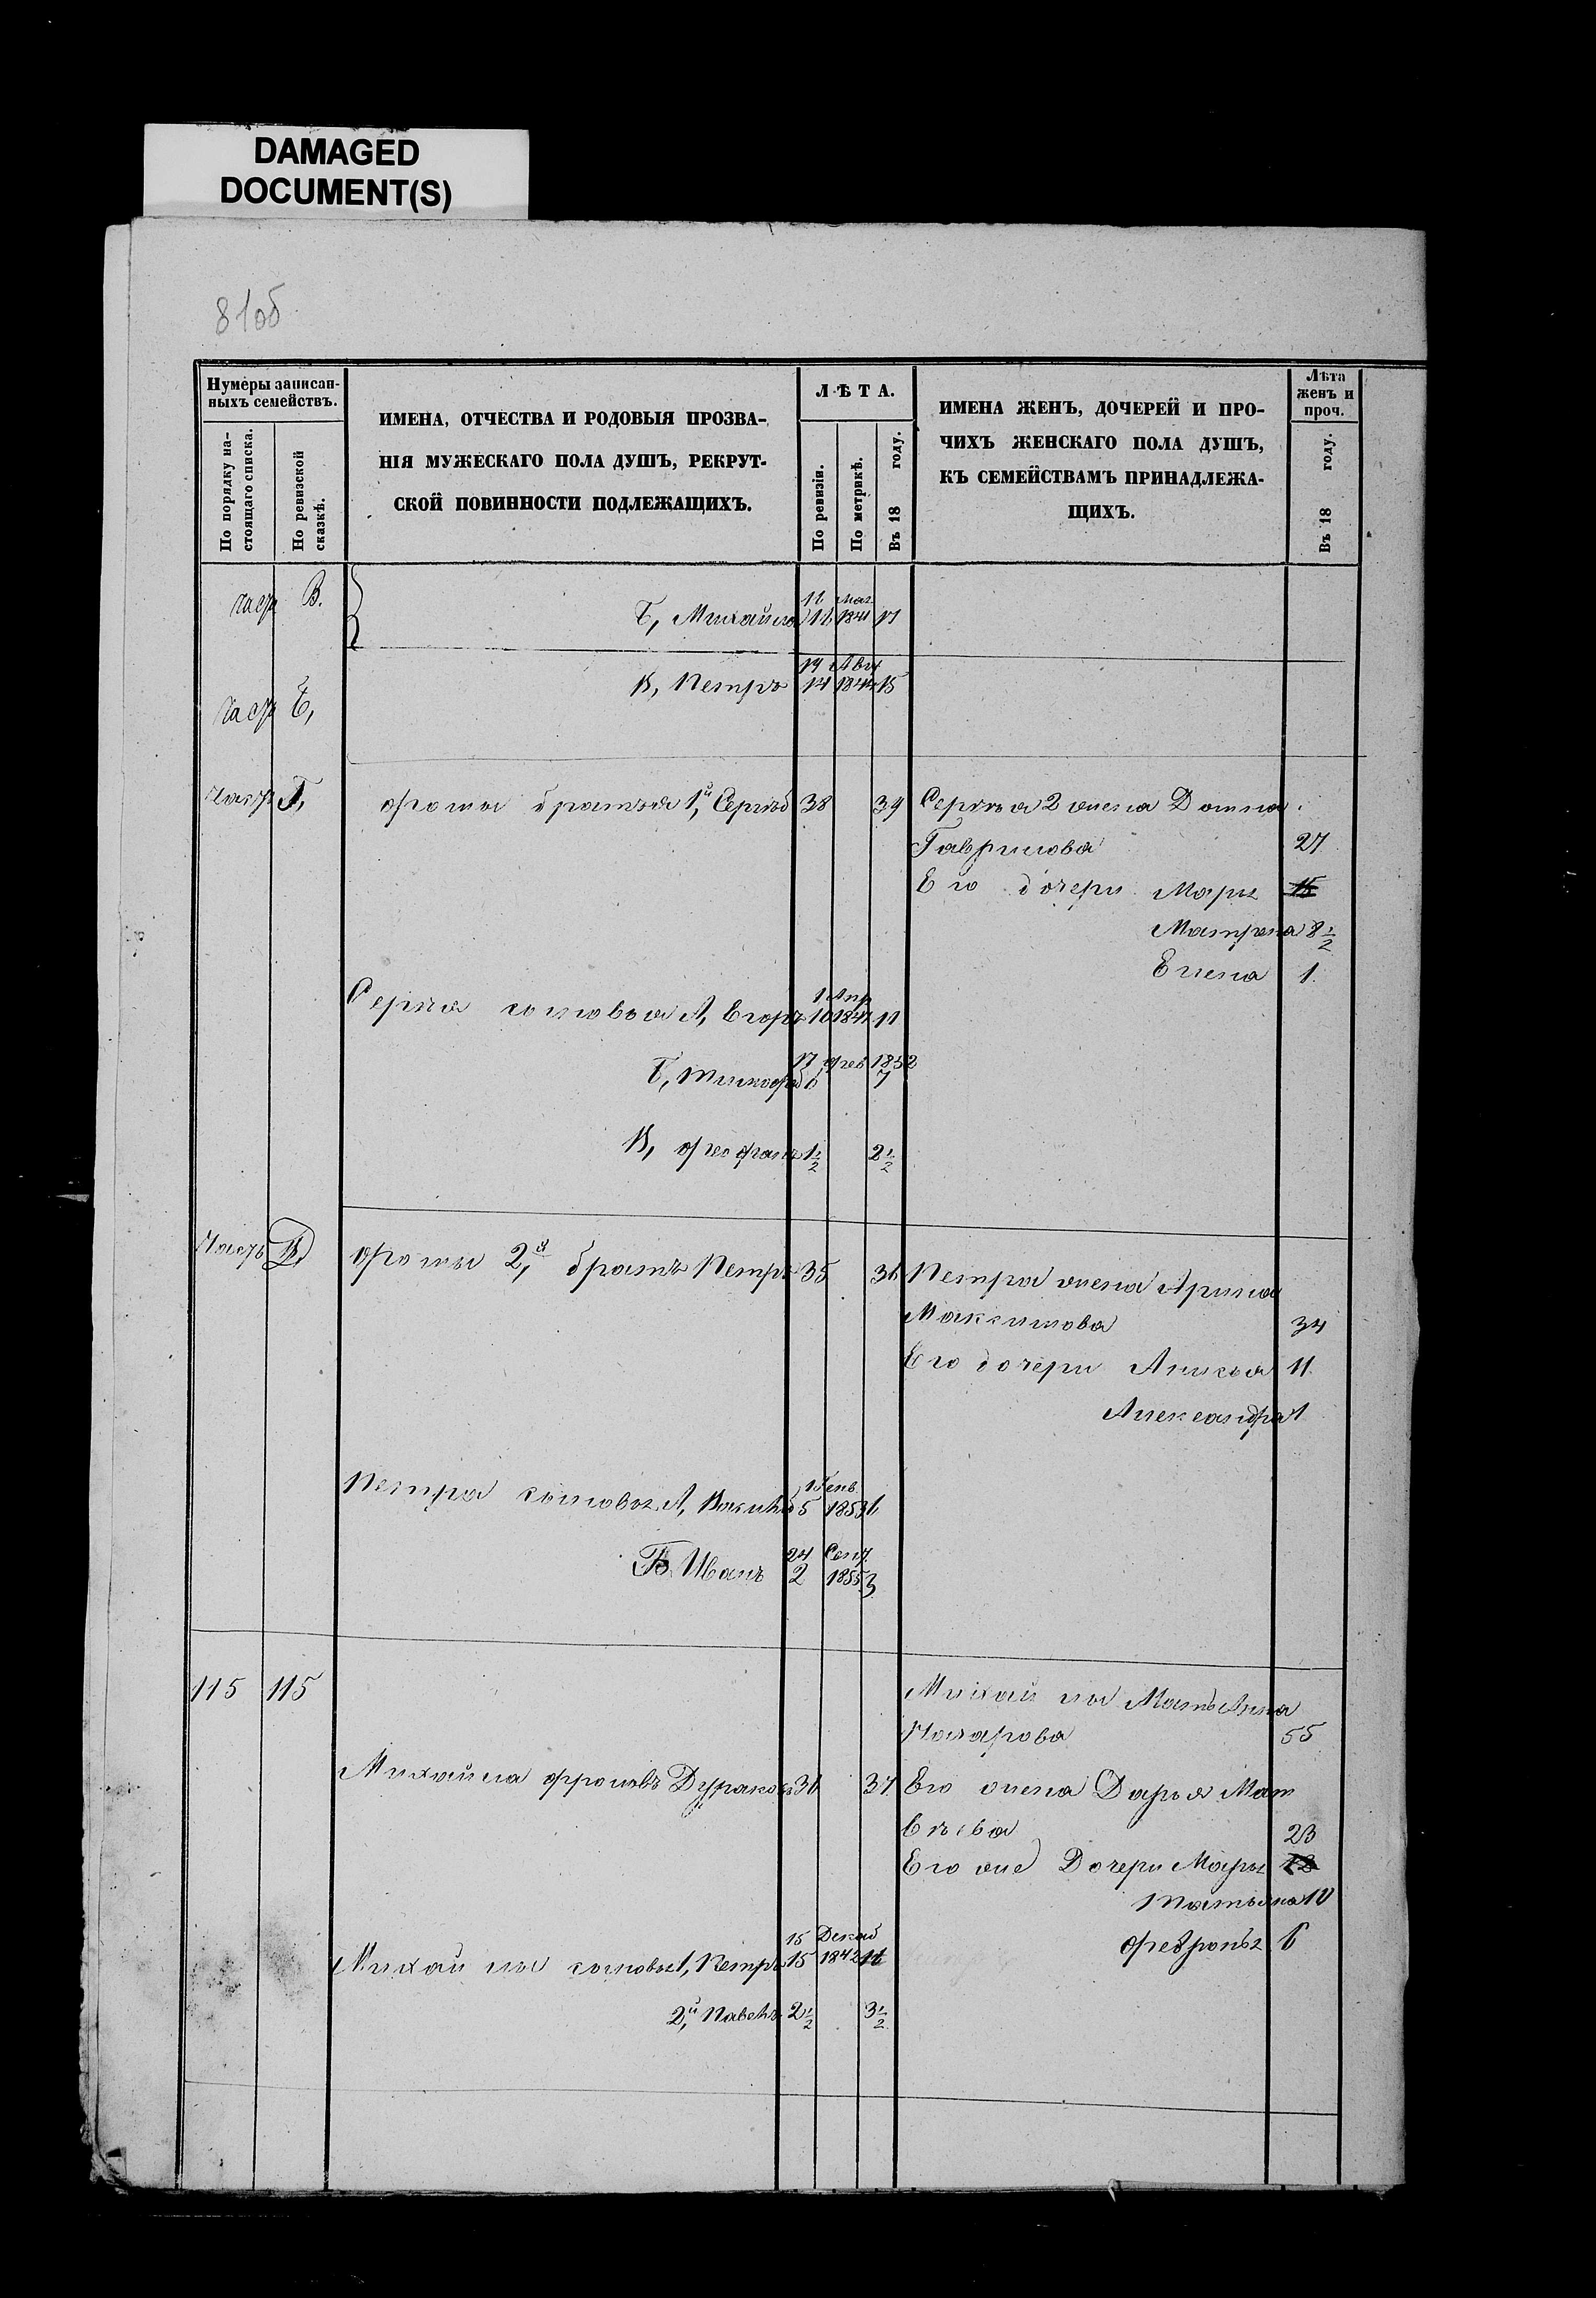 DAMAGED
DOCUMENT(S)
81об
Нумеры записан-
ныхъ семействъ.
По порядку на-
стоящаго списка.
По ревизской
сказкѣ.
ИМЕНА, ОТЧЕСТВА И РОДОВЫЯ ПРОЗВА-
НІЯ МУЖЕСКАГО ПОЛА ДУШЪ, РЕКРУТ-
СКОЙ ПОВИННОСТИ ПОДЛЕЖАЩИХЪ.
ЛѢТА.
По ревизіи.
По метрикѣ.
Въ 18 году.
ИМЕНА ЖЕНЪ, ДОЧЕРЕЙ И ПРО-
ЧИХЪ ЖЕНСКАГО ПОЛА ДУШЪ,
КЪ СЕМЕЙСТВАМЪ ПРИНАДЛЕЖА-
ЩИХЪ.
Лѣта
женъ и
проч.
Въ 18 году.
часть В.
Б, Михайла 16 1841 17
14 Авг
В, Петръ 14 1842 15
часть Б,
часть Г, Фомы братья 1й, Сергѣй 38 39 Сергѣя 2 жена Домна
Гаврилова 27
Его дочери Марья 15
Матрена 8 1/2
Елена 1
1 Апр
Сергѣя сыновья А, Егоръ 10 1847 11
17 Фев 1852
Б, Тимофей 6 7
В, Феофанъ 1 1/2 2 1/2
Часть Д Фомы 2й, братъ Петръ 35 36 Петра жена Арина
Максимова 34
Его дочери Анисья 11
Александра 1
1 Генв.
Петра сыновья А, Василій 5 1853 6
24 Сент.
Б Иванъ 2 1855 3
115 115 Михайлы Мать Анна
Захарова 55
Михайла Фроловъ Дураковъ 36 37 Его жена Дарья Мат
вѣева 23
Его же Дочери Марья
Татьяна 10
15 Декаб
Февронья 6
Михайлы сыновья 1, Петръ 15 1842 16
2й, Павелъ 2 1/2 3 1/2